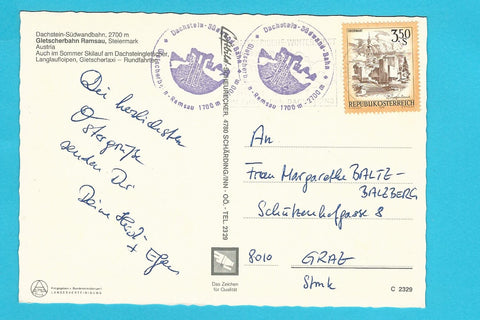 Dachstein-Südwandbahn, 2700 m
Gletscherbahn Ramsau, Steiermark
Austria
Auch im Sommer Skilauf am Dachsteingletscher,
Langlaufloipen, Gletschertaxi - Rundfahrten
Die herzlichsten
Ostergrüße
senden Dir
Deine
+
4780 SCHÄRDING/INN - OÖ. - TEL. 2329
Dachstein-Südwand-Bahn
Ramsau 1700 m - 2700 m
Dachstein-Südwand-Bahn
Ramsau 1700 m - 2700 m
3.50
S
REPUBLIK ÖSTERREICH
An
Frau Margarethe BALTE-
BALZBERG
Schützenhofgasse 8
8010 GRAZ
Stmk
Das Zeichen
für Qualität
C 2329